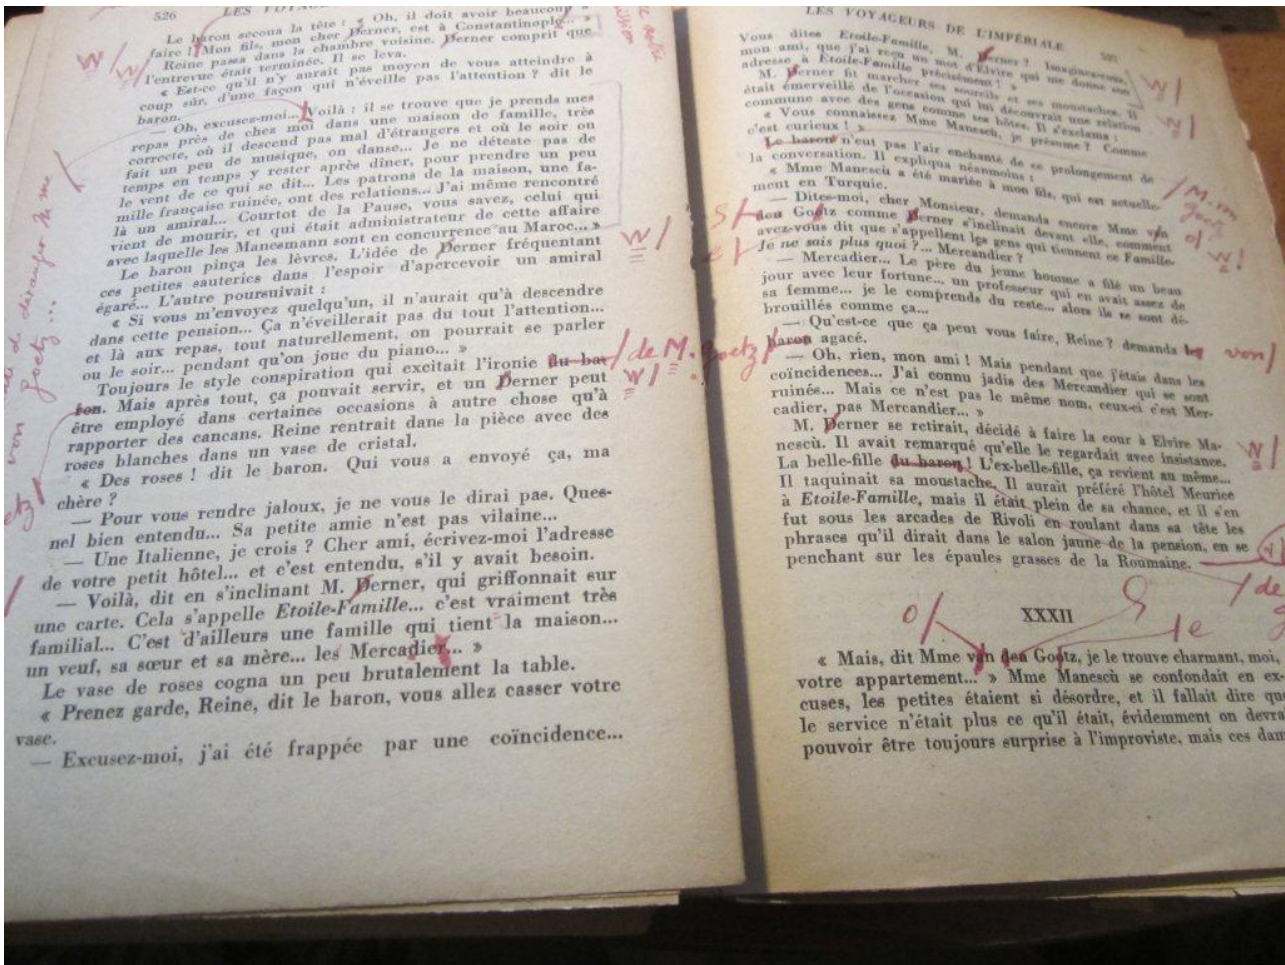 526 LES VOYAG
Le baron secoua la tête : « Oh, il doit avoir beaucoup à
faire ! Mon fils, mon cher Derner, est à Constantinople... »
Reine passa dans la chambre voisine. Derner comprit que
l'entrevue était terminée. Il se leva.
« Est-ce qu'il n'y aurait pas moyen de vous atteindre à
coup sûr, d'une façon qui n'éveille pas l'attention ? dit le
baron.
— Oh, excusez-moi... Voilà : il se trouve que je prends mes
repas près de chez moi dans une maison de famille, très
correcte, où il descend pas mal d'étrangers et où le soir on
fait un peu de musique, on danse... Je ne déteste pas de
temps en temps y rester après dîner, pour prendre un peu
le vent de ce qui se dit... Les patrons de la maison, une fa-
mille française ruinée, ont des relations... J'ai même rencontré
là un amiral... Courtot de la Pause, vous savez, celui qui
vient de mourir, et qui était administrateur de cette affaire
avec laquelle les Manesmann sont en concurrence au Maroc... »
Le baron pinça les lèvres. L'idée de Derner fréquentant
ces petites sauteries dans l'espoir d'apercevoir un amiral
égaré... L'autre poursuivait :
« Si vous m'envoyez quelqu'un, il n'aurait qu'à descendre
dans cette pension... Ça n'éveillerait pas du tout l'attention...
et là aux repas, tout naturellement, on pourrait se parler
ou le soir... pendant qu'on joue du piano... »
Toujours le style conspiration qui excitait l'ironie du ba- / de M. Goetz /
ron. Mais après tout, ça pouvait servir, et un Derner peut W /
être employé dans certaines occasions à autre chose qu'à
rapporter des cancans. Reine rentrait dans la pièce avec des
roses blanches dans un vase de cristal.
« Des roses ! dit le baron. Qui vous a envoyé ça, ma
chère ?
— Pour vous rendre jaloux, je ne vous le dirai pas. Ques-
nel bien entendu... Sa petite amie n'est pas vilaine...
— Une Italienne, je crois ? Cher ami, écrivez-moi l'adresse
de votre petit hôtel... et c'est entendu, s'il y avait besoin.
— Voilà, dit en s'inclinant M. Derner, qui griffonnait sur
une carte. Cela s'appelle Etoile-Famille... c'est vraiment très
familial... C'est d'ailleurs une famille qui tient la maison...
un veuf, sa sœur et sa mère... les Mercadier... »
Le vase de roses cogna un peu brutalement la table.
« Prenez garde, Reine, dit le baron, vous allez casser votre
vase.
— Excusez-moi, j'ai été frappée par une coïncidence...
LES VOYAGEURS DE L'IMPÉRIALE 527
Vous dites Etoile-Famille, M. Derner ? Imaginez-vous,
mon ami, que j'ai reçu un mot d'Elvire qui me donne son
adresse à Etoile-Famille précisément ! »
M. Derner fit marcher ses sourcils et ses moustaches. Il
était émerveillé de l'occasion qui lui découvrait une relation
commune avec des gens comme ses hôtes. Il s'exclama :
« Vous connaissez Mme Manescù, je présume ? Comme
c'est curieux ! »
Le baron n'eut pas l'air enchanté de ce prolongement de
la conversation. Il expliqua néanmoins :
« Mme Manescù a été mariée à mon fils, qui est actuelle-
ment en Turquie.
— Dites-moi, cher Monsieur, demanda encore Mme van
den Goetz comme Derner s'inclinait devant elle, comment
avez-vous dit que s'appellent les gens qui tiennent ce Famille-
Je ne sais plus quoi ?... Mercandier ?
— Mercadier... Le père du jeune homme a filé un beau
jour avec leur fortune... un professeur qui en avait assez de
sa femme... je le comprends du reste... alors ils se sont dé-
brouillés comme ça...
— Qu'est-ce que ça peut vous faire, Reine ? demanda le von /
baron agacé.
— Oh, rien, mon ami ! Mais pendant que j'étais dans les
coïncidences... J'ai connu jadis des Mercandier qui se sont
ruinés... Mais ce n'est pas le même nom, ceux-ci c'est Mer-
cadier, pas Mercandier... »
M. Derner se retirait, décidé à faire la cour à Elvire Ma-
nescù. Il avait remarqué qu'elle le regardait avec insistance. W /
La belle-fille du baron ! L'ex-belle-fille, ça revient au même...
Il taquinait sa moustache. Il aurait préféré l'hôtel Meurice
à Etoile-Famille, mais il était plein de sa chance, et il s'en
fut sous les arcades de Rivoli en roulant dans sa tête les
phrases qu'il dirait dans le salon jaune de la pension, en se
penchant sur les épaules grasses de la Roumaine.
/ de
o / / e
XXXII
« Mais, dit Mme van den Goetz, je le trouve charmant, moi,
votre appartement... » Mme Manescù se confondait en ex-
cuses, les petites étaient si désordre, et il fallait dire que
le service n'était plus ce qu'il était, évidemment on devra
pouvoir être toujours surprise à l'improviste, mais ces dam